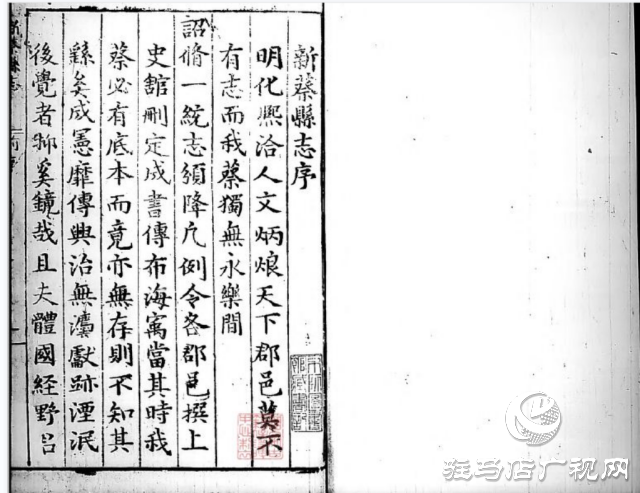 新蔡縣志序
明化熙洽人文炳烺天下郡邑莫不
有志而我蔡獨無永樂間
詔脩一統志頒降凡例令各郡邑撰上
史舘刪定成書傳布海寓當其時我
蔡必有底本而竟亦無存則不知其
繇矣成憲靡傳興治無灋獻跡湮泯
後覺者抑奚鏡哉且夫體國経野㠯
驻马店广视网